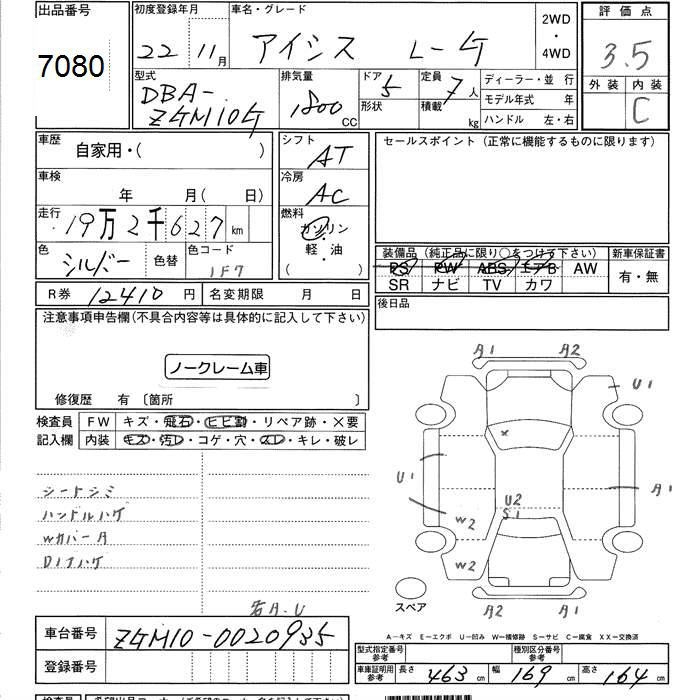 出品番号
7080
初度登録年月
22 11月
車名・グレード
アイシス L-G
2WD
・
4WD
評価点
3.5
外装 内装
C
型式
DBA-
ZGM10G
排気量
1800 CC
ドア 5
形状
定員 7人
積載 kg
ディーラー・並 行
モデル年式 年
ハンドル 左・右
車歴
自家用・( )
車検
年 月( 日)
走行
19万2千627km
色
シルバー
色替
色コード
1F7
シフト
AT
冷房
AC
燃料
ガソリン
・
軽・油
( )
セールスポイント (正常に機能するものに限ります)
装備品 (純正品に限り○をつけて下さい)
PS PW ABS エアB AW
SR ナビ TV カワ
新車保証書
有・無
後日品
R券 12410 円
名変期限 月 日
注意事項申告欄(不具合内容等は具体的に記入して下さい)
ノークレーム車
修復歴 有 〔箇所 〕
検査員
記入欄
FW キズ・飛石・ヒビ割・リペア跡・×要
内装 キズ・汚レ・コゲ・穴・スレ・キレ・破レ
シートシミ
ハンドルハゲ
Wカバー A
Dノブハゲ
若A.U
A1 A2
U1
×
U1
A1
U2
S1
W2
W2
A2 A1
スペア
A-キズ E-エクボ U-凹み W-補修跡 S-サビ C-腐食 XX-交換済
車台番号 ZGM10-0020935
登録番号
型式指定番号
参考
種別区分番号
参考
車庫証明用
参考
長さ 463 cm 幅 169 cm 高さ 164 cm